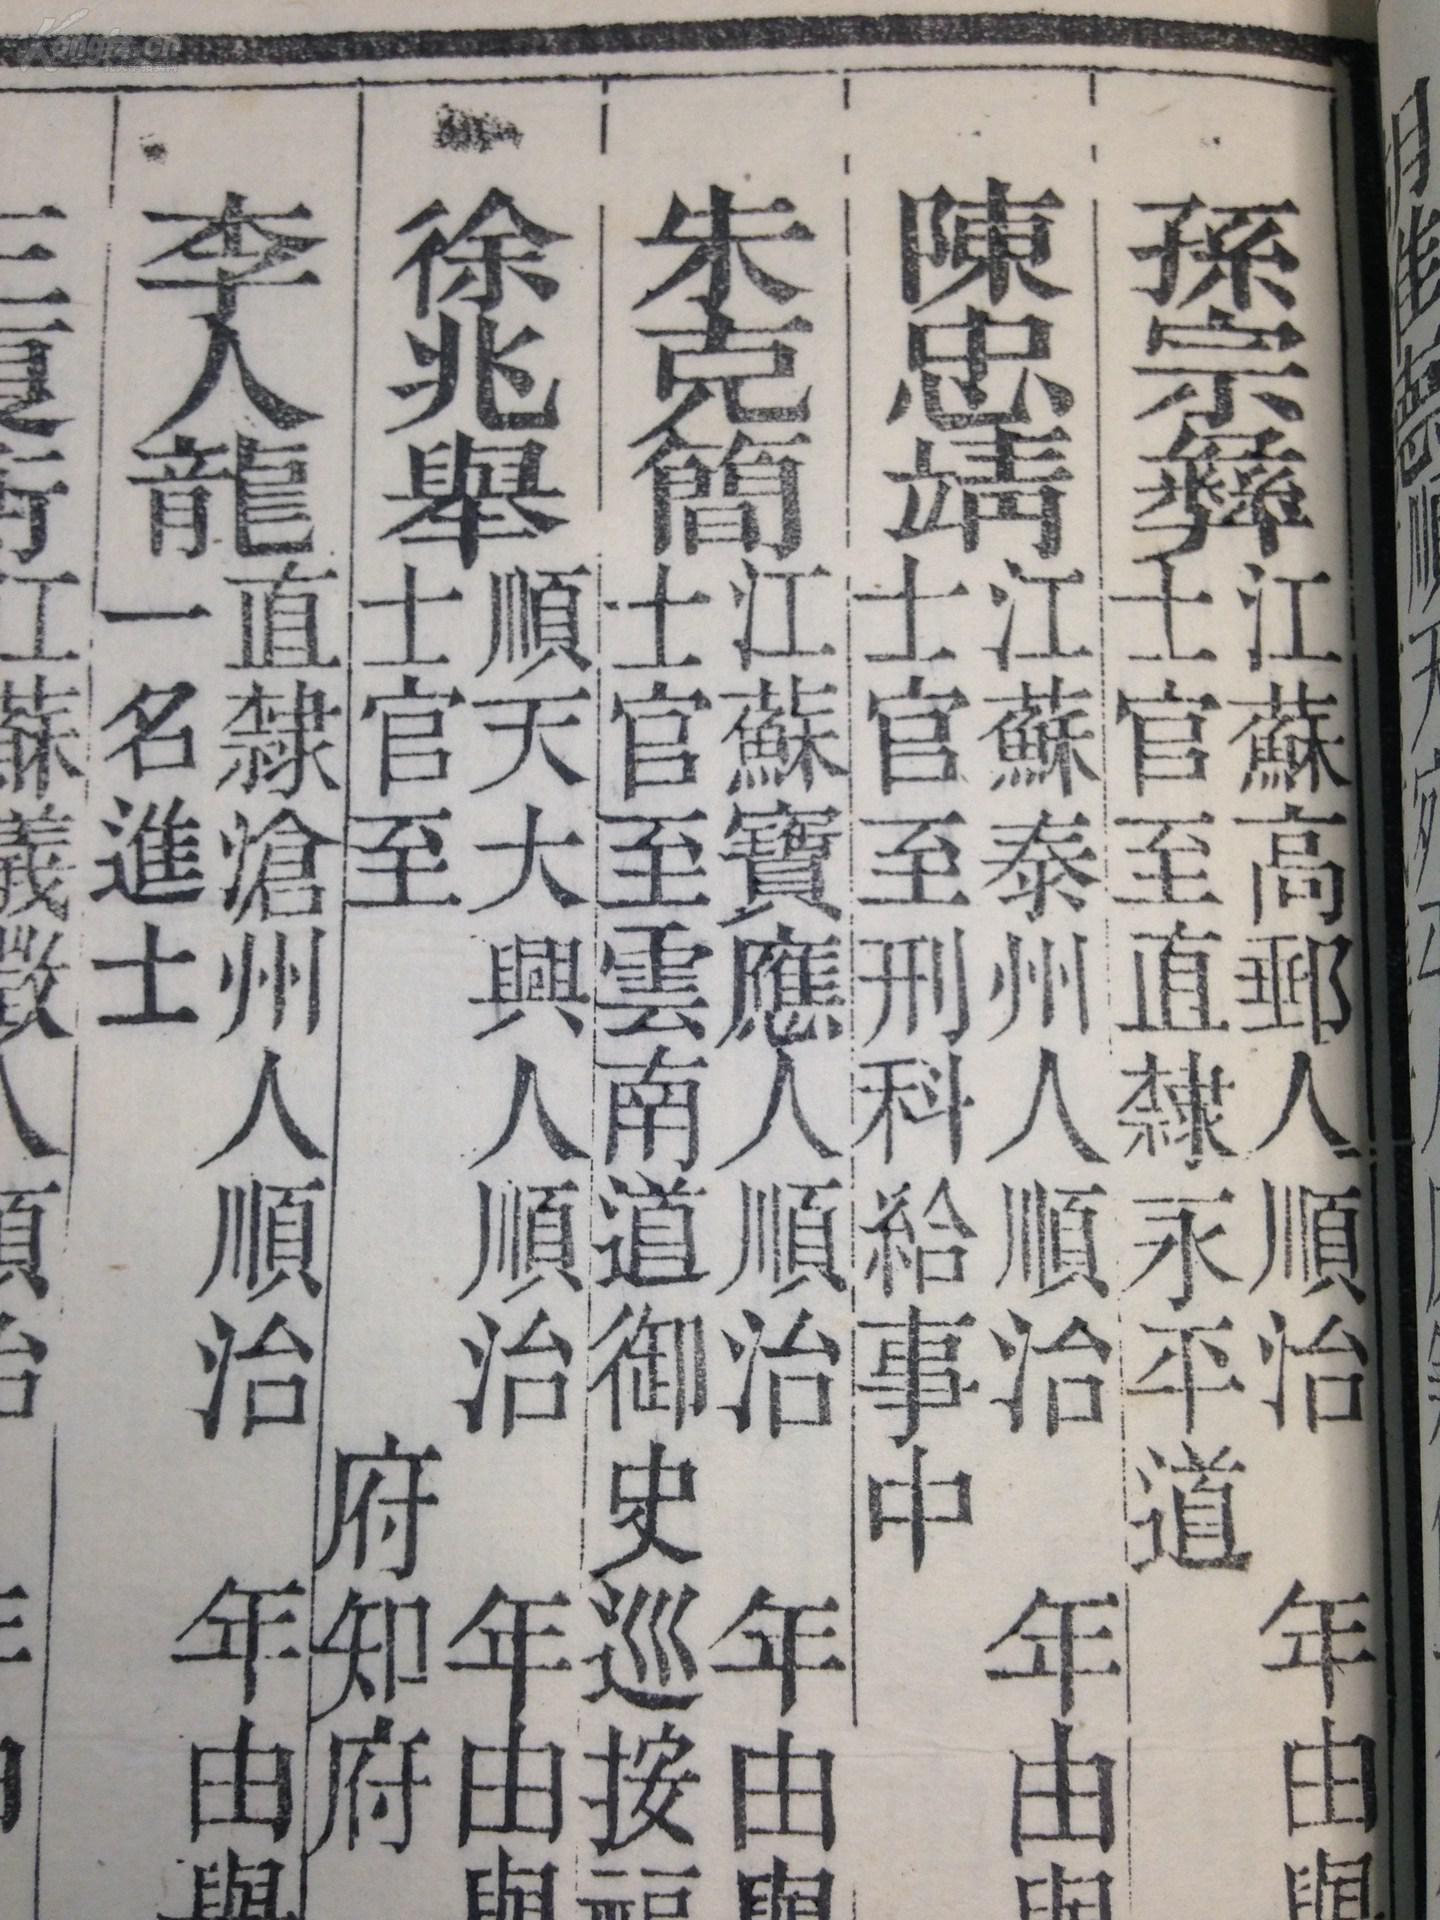 孫宗彝
江蘇高郵人順治 年由與
士官至直隸永平道
陳忠靖
江蘇泰州人順治 年由與
士官至刑科給事中
朱克簡
江蘇寶應人順治 年由與
士官至雲南道御史巡按福
徐兆舉
順天大興人順治 年由與
士官至 府知府
李人龍
直隸滄州人順治 年由與
一名進士
江蘇儀徵人順治 年由
Kongfz.cn